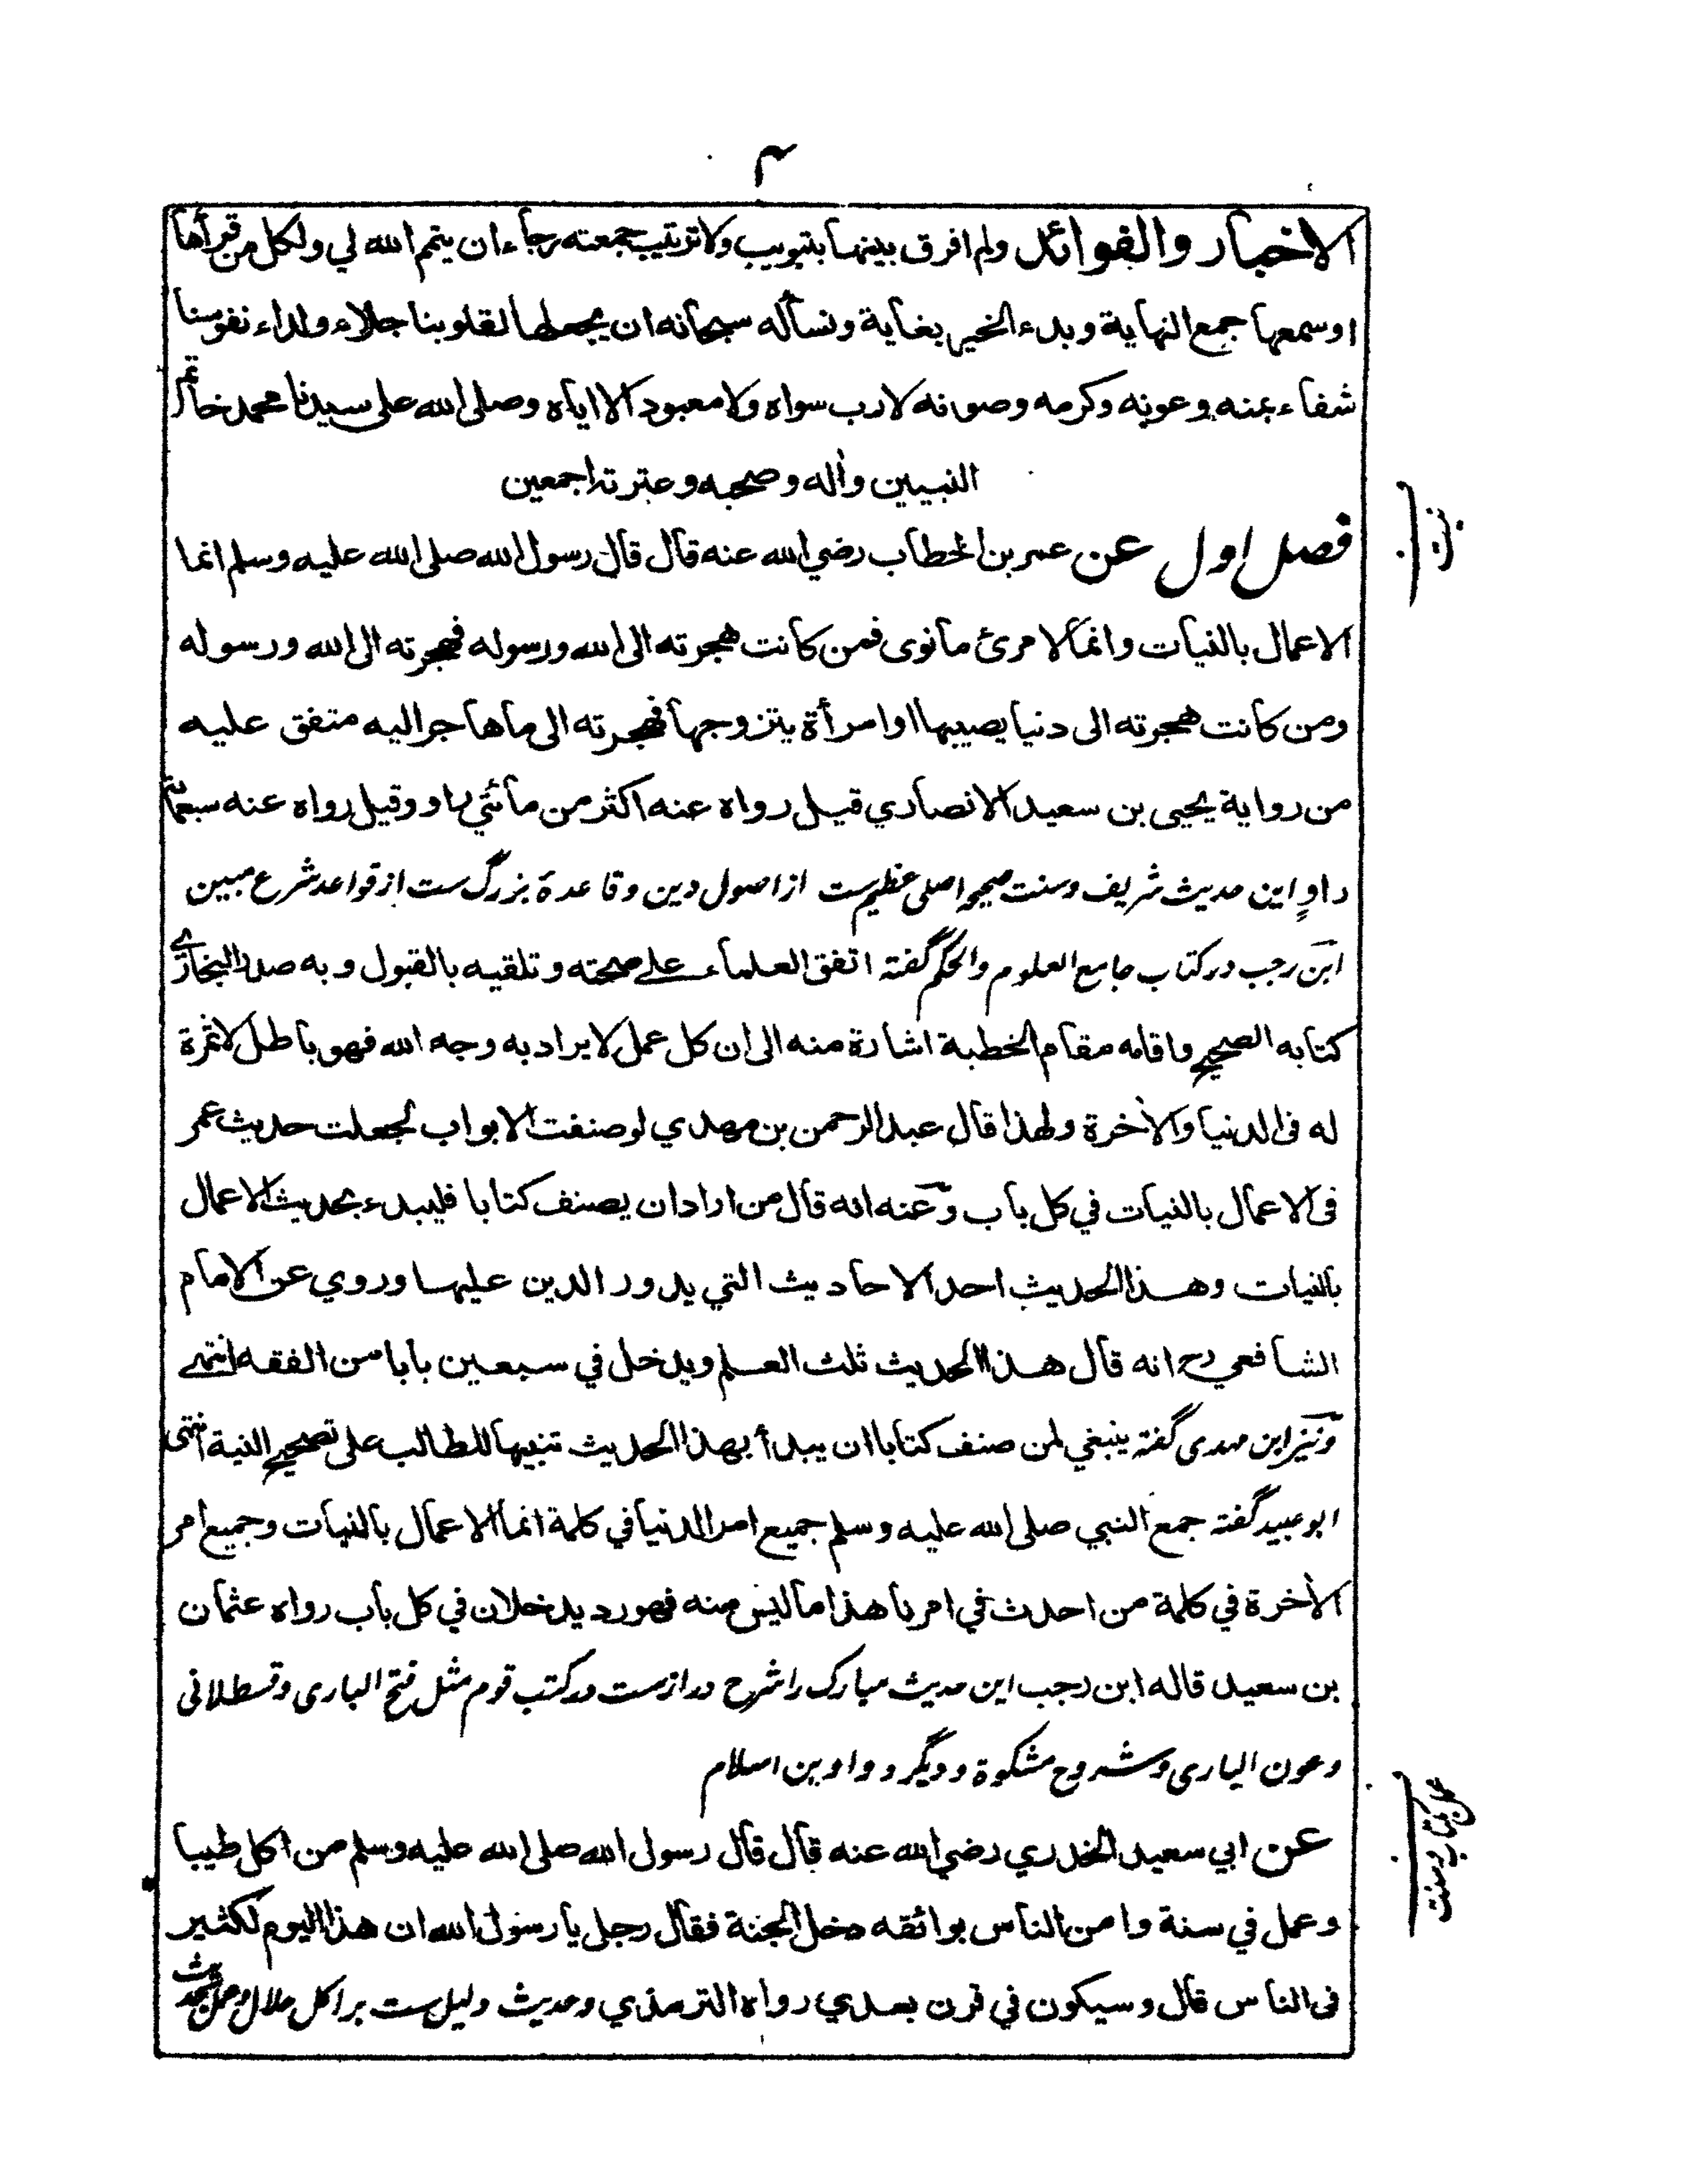 ٣
الاخبار والفوائد ولم افرق بينها بتبويب ولا ترتيب جمعته رجاء ان يتم الله لي ولكل من قرأها
اوسمعها جمع النهاية وبدء الخير بغاية ونسأله سبحانه ان يجعلها لقلوبنا جلاء ولداء نفوسنا
شفاء بمنه وعونه وكرمه وصونه لارب سواه ولا معبود الا اياه وصلى الله على سيدنا محمد خاتم
النبيين وأله وصحبه وعترته اجمعين
فصل اول عن عمر بن الخطاب رضي الله عنه قال قال رسول الله صلى الله عليه وسلم انما
الاعمال بالنيات وانما لامرئ ما نوى فمن كانت هجرته الى الله ورسوله فهجرته الى الله ورسوله
ومن كانت هجرته الى دنيا يصيبها او امرأة يتزوجها فهجرته الى ما هاجر اليه متفق عليه
من رواية يحيى بن سعيد الانصاري قيل رواه عنه اكثر من مائتي راو وقيل رواه عنه سبعمائة
راوٍ اين حديث شريف وسنت صحيحه اصلى عظيم ست از اصول دين وقاعدۀ بزرگ ست از قواعد شرع مبين
ابن رجب در كتاب جامع العلوم والحكم گفته اتفق العلماء على صحته وتلقيه بالقبول وبه صدر البخاري
كتابه الصحيح واقامه مقام الخطبة اشارة منه الى ان كل عمل لا يراد به وجه الله فهو باطل لا ثمرة
له فى الدنيا والأخرة ولهذا قال عبد الرحمن بن مهدي لو صنفت الابواب لجعلت حديث عمر
فى الاعمال بالنيات في كل باب وعنه انه قال من اراد ان يصنف كتابا فليبدء بحديث الاعمال
بالنيات وهذا الحديث احد الاحاديث التي يدور الدين عليها وروي عن الامام
الشافعي رح انه قال هذا الحديث ثلث العلم ويدخل في سبعين بابا من الفقه انتهى
ونيز ابن مهدى گفته ينبغي لمن صنف كتابا ان يبدأ بهذا الحديث تنبيها للطالب على تصحيح النية انتهى
ابو عبيد گفته جمع النبي صلى الله عليه وسلم جميع امر الدنيا في كلمة انما الاعمال بالنيات وجميع امر
الأخرة في كلمة من احدث في امرنا هذا ما ليس منه فهو رد يدخلان في كل باب رواه عثمان
بن سعيد قاله ابن رجب اين حديث مبارك را شرح دراز ست در كتب قوم مثل فتح البارى وقسطلانى
وعون البارى وشروح مشكوة وديگر دواوين اسلام
عن ابي سعيد الخدري رضي الله عنه قال قال رسول الله صلى الله عليه وسلم من اكل طيبا
وعمل في سنة وامن الناس بوائقه دخل الجنة فقال رجل يا رسول الله ان هذا اليوم لكثير
فى الناس قال وسيكون في قرن بعدي رواه الترمذي وحديث دليل ست بر اكل حلال وعمل بحديث
نيت
عمل بكتاب وسنت